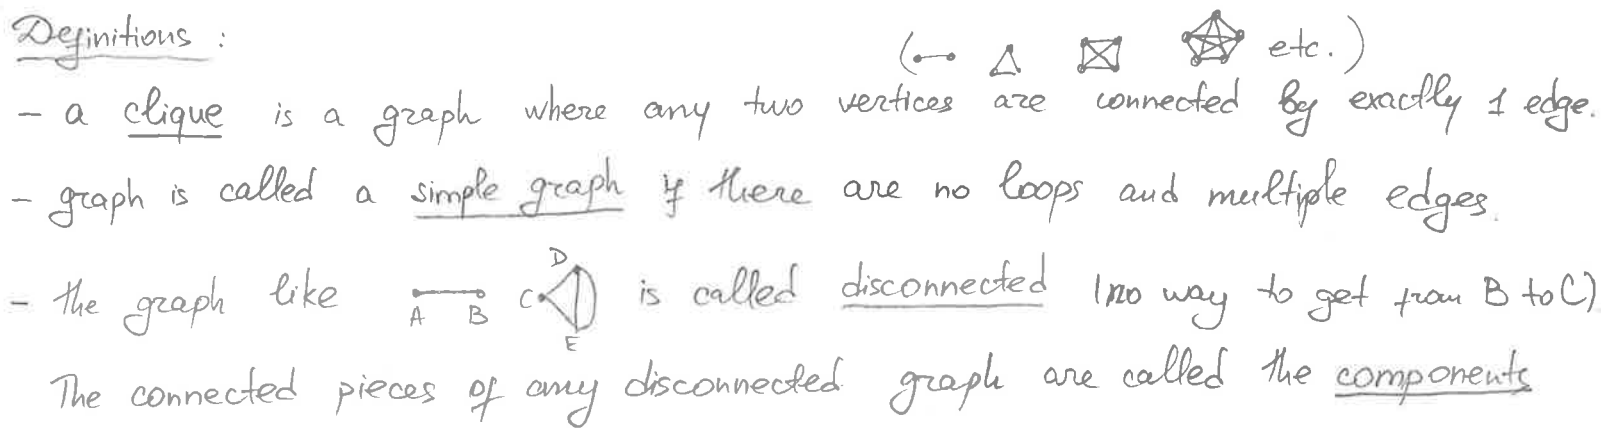 Definitions :
( etc. )
- a clique is a graph where any two vertices are connected by exactly 1 edge.
- graph is called a simple graph if there are no loops and multiple edges.
- the graph like A B C D E is called disconnected (no way to get from B to C)
The connected pieces of any disconnected graph are called the components